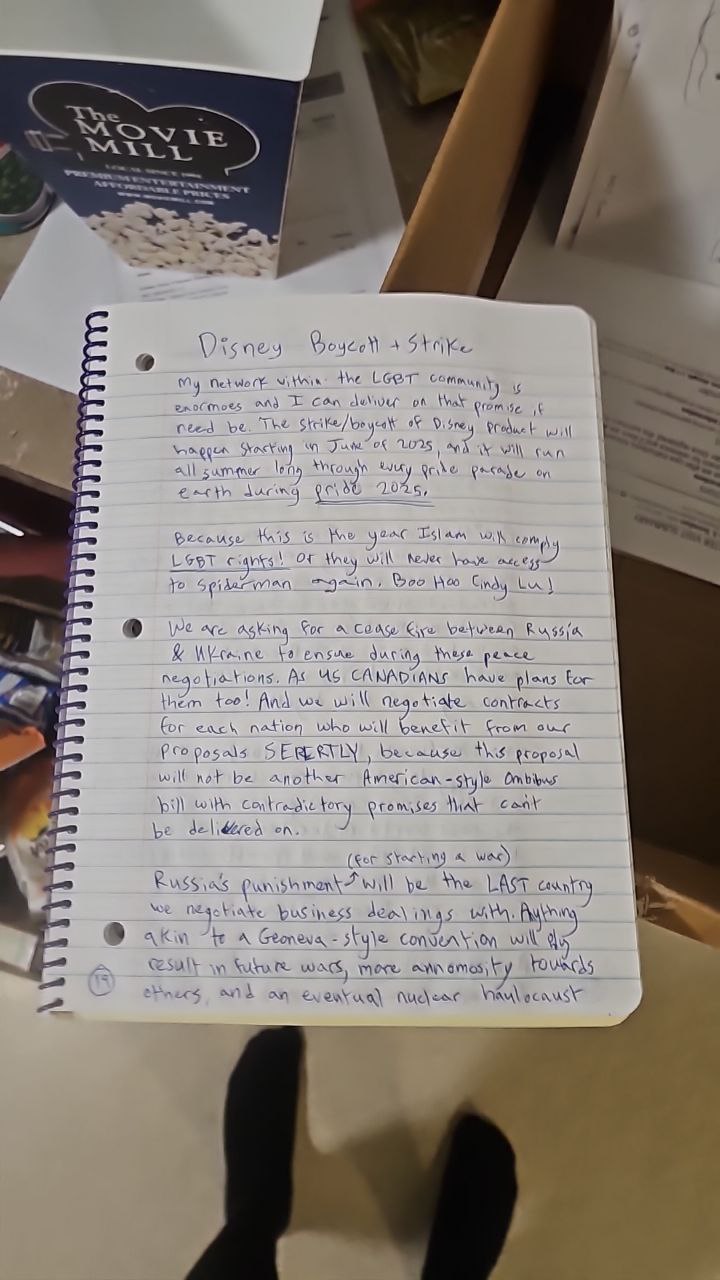 The
MOVIE
MILL
LOCAL SINCE
PREMIUM ENTERTAINMENT
AFFORDABLE PRICES
Disney Boycott + Strike
My network within the LGBT community is
enormoes and I can deliver on that promise if
need be. The strike/boycott of Disney product will
happen starting in June of 2025, and it will run
all summer long through every pride parade on
earth during pride 2025.
Because this is the year Islam will comply
LGBT rights! Or they will never have access
to Spiderman again. Boo Hoo Cindy Lu!
We are asking for a cease fire between Russia
& Ukraine to ensue during these peace
negotiations. As US CANADIANS have plans for
them too! And we will negotiate contracts
for each nation who will benefit from our
proposals SEBERTLY, because this proposal
will not be another American-style ombibus
bill with contradictory promises that can't
be delivered on.
(for starting a war)
Russia's punishment will be the LAST country
we negotiate business dealings with. Anything
akin to a Geoneva-style convention will
result in future wars, more annomosity towards
19 others, and an eventual nuclear haulocaust